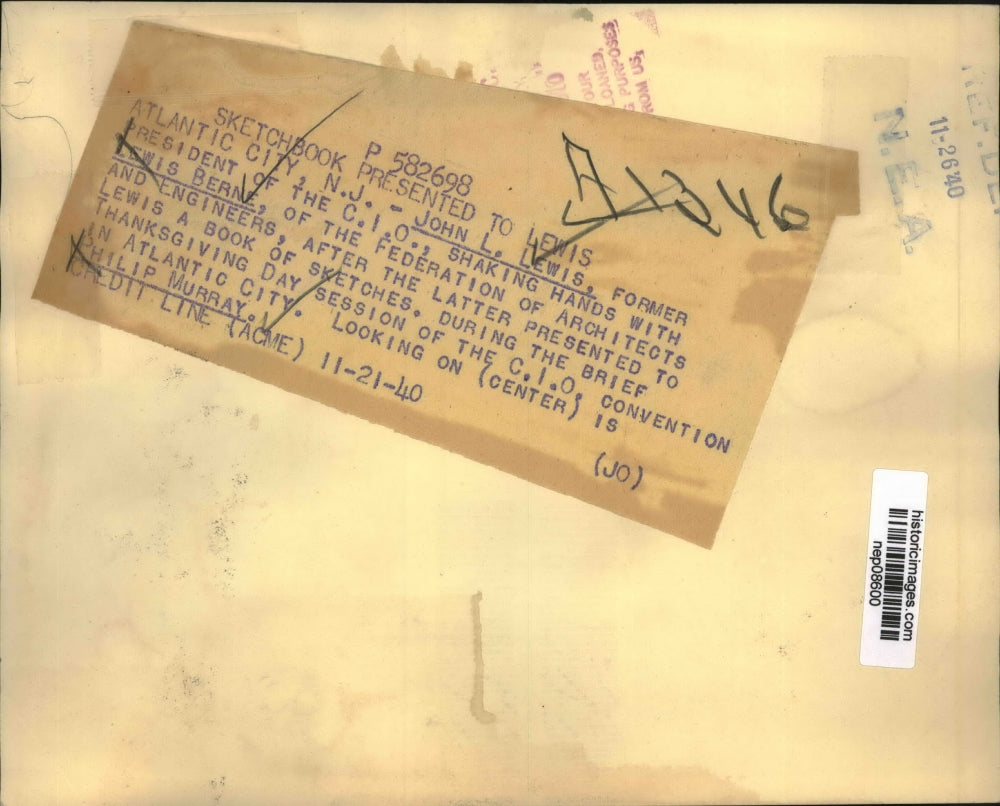 P 582698
SKETCHBOOK PRESENTED TO LEWIS
ATLANTIC CITY, N.J. - JOHN L. LEWIS, FORMER
PRESIDENT OF THE C.I.O., SHAKING HANDS WITH
LEWIS BERNE, OF THE FEDERATION OF ARCHITECTS
AND ENGINEERS, AFTER THE LATTER PRESENTED TO
LEWIS A BOOK OF SKETCHES. DURING THE BRIEF
THANKSGIVING DAY SESSION OF THE C.I.O. CONVENTION
IN ATLANTIC CITY. LOOKING ON (CENTER) IS
PHILIP MURRAY.
CREDIT LINE (ACME) 11-21-40 (JO)
N.E.A.
11-26'40
FROM US,
PURPOSES
LOANED,
OUR
historicimages.com
nep08600